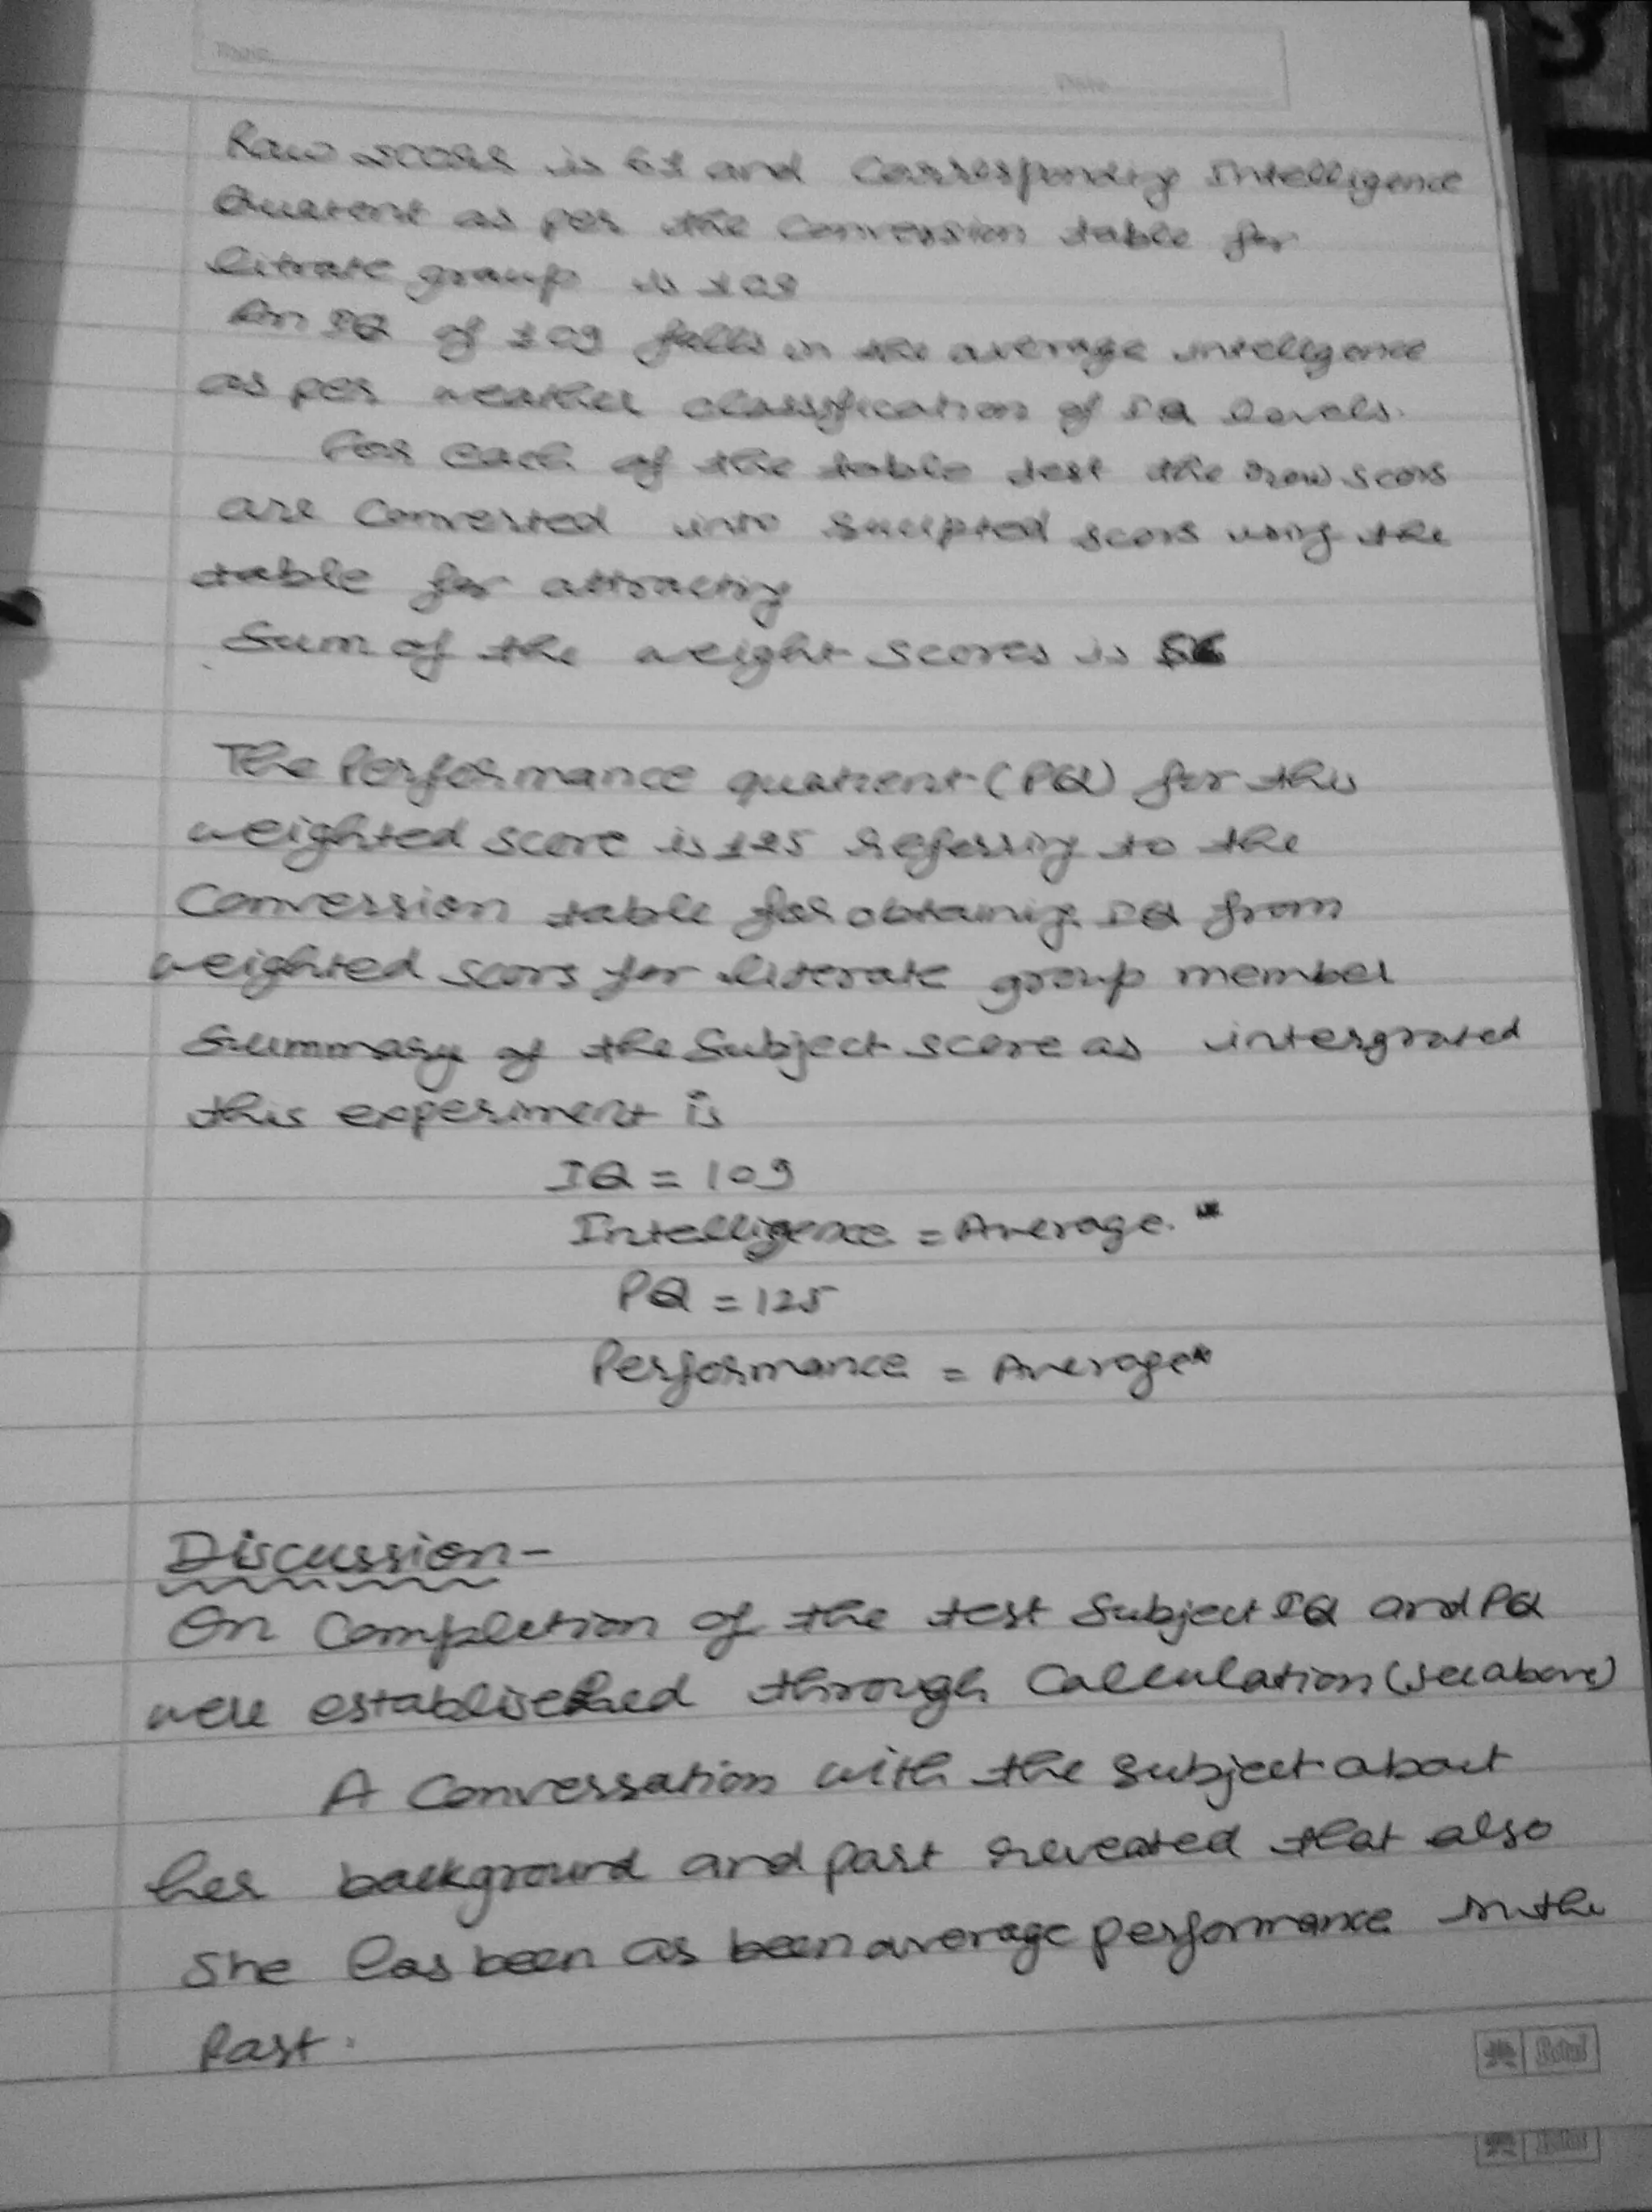 Topic
Date
Raw scores is 61 and Corresponding Intelligence
Quatent as per the Conversion table for
litrate group is 109
An IQ of 109 falls in the average intelligence
as per weather classification of IQ levels.
For each of the table test the raw scors
are converted into scors using the
table for attracting
Sum of the weight scores is 56
The Performance quatient (PQ) for this
weighted score is 125 referring to the
Conversion table for obtaining IQ from
weighted scors for literate group member
Summary of the Subject score as intergrated
this experiment is
IQ = 109
Intelligence = Average.
PQ = 125
Performance = Average*
Discussion-
On Completion of the test Subject IQ and PQ
were established through Calculation (see above)
A Conversation with the subject about
her background and past revealed that also
She has been as been average performance in the
Past.